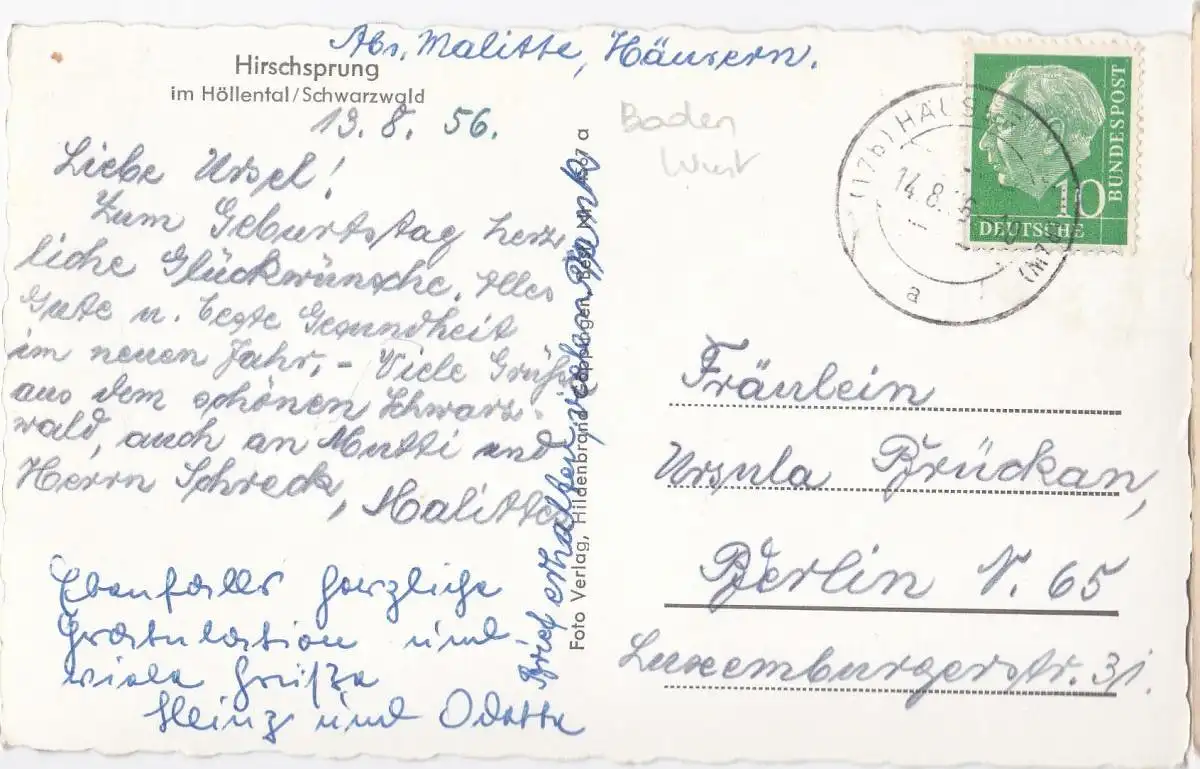 Abs. Malitte, Häusern.
Hirschsprung
im Höllental/Schwarzwald
13. 8. 56.
Liebe Ursel!
Zum Geburtstag herz-
liche Glückwünsche. Alles
Gute u. beste Gesundheit
im neuen Jahr. – Viele Grüße
aus dem schönen Schwarz-
wald, auch an Mutti und
Herrn Schreck, Malittes
Ebenfalls herzliche
Gratulation und
viele Grüße
Heinz und Odette
Brief erhalten, vielen Dank
Foto Verlag, Hildenbrand Göppingen, Best. Nr. a
Baden
Würt
(17b) HÄUSERN
14.8.
a
DEUTSCHE
BUNDESPOST
10
Fräulein
Ursula Brückan,
Berlin N. 65
Luxemburgerstr. 31.